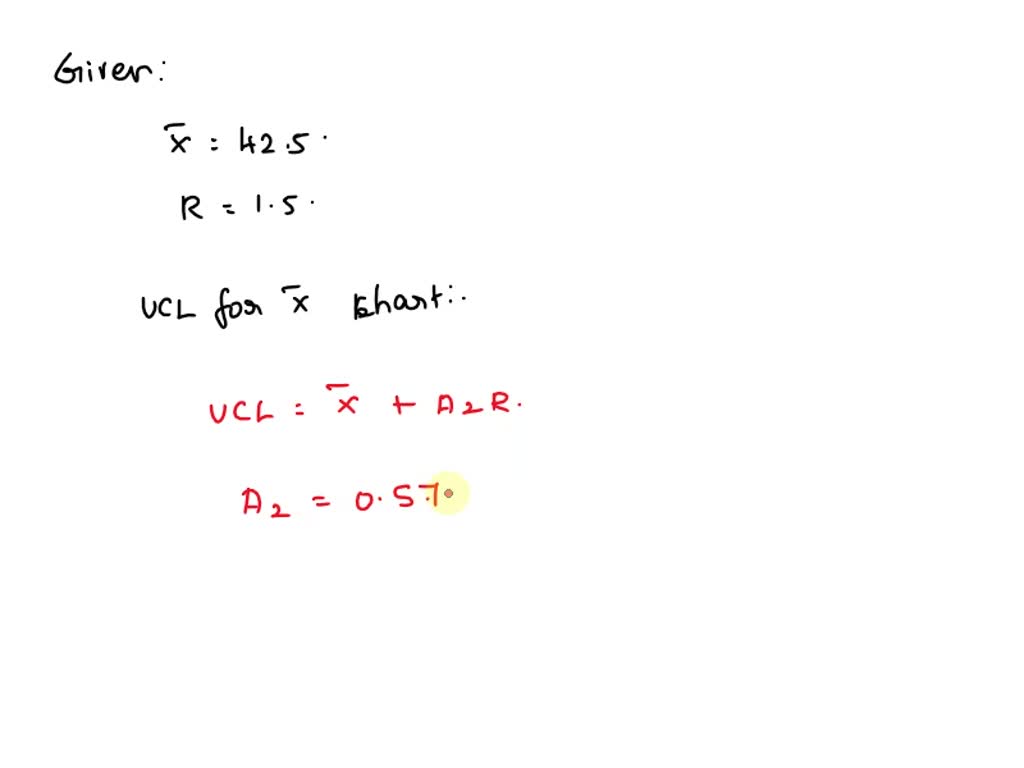 Given:
x̄ = 42.5.
R = 1.5.
UCL for x̄ chart:.
UCL = x̄ + A₂R.
A₂ = 0.57